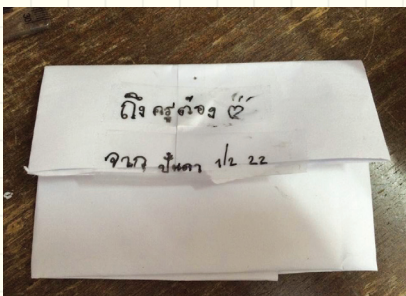 ถึง ครูต้อง
จาก ปันดา 1/2 22